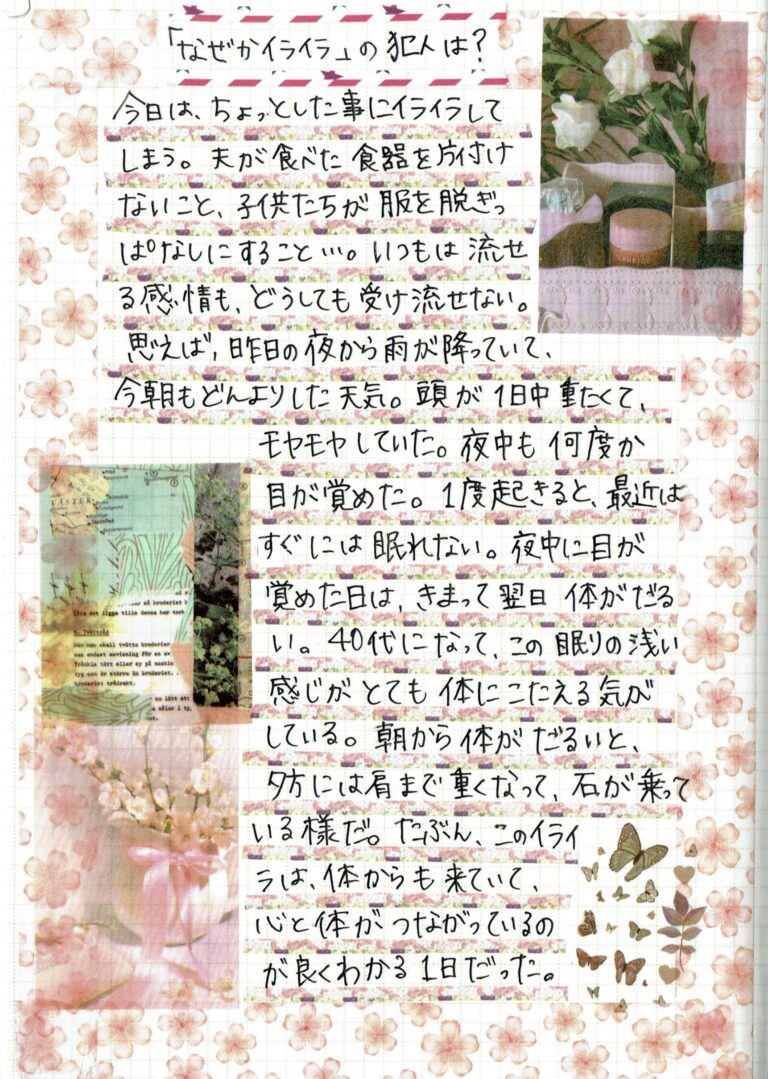 「なぜかイライラ」の犯人は?
今日は、ちょっとした事にイライラして
しまう。夫が食べた食器を片付け
ないこと、子供たちが服を脱ぎっ
ぱなしにすること…。いつもは流せ
る感情も、どうしても受け流せない。
思えば、昨日の夜から雨が降っていて、
今朝もどんよりした天気。頭が1日中重たくて、
モヤモヤしていた。夜中も何度か
目が覚めた。1度起きると、最近は
すぐには眠れない。夜中に目が
覚めた日は、きまって翌日体がだる
い。40代になって、この眠りの浅い
感じがとても体にこたえる気が
している。朝から体がだるいと、
夕方には肩まで重くなって、石が乗って
いる様だ。たぶん、このイライ
ラは、体からも来ていて、
心と体がつながっているの
が良くわかる1日だった。
LANEIGE
VÄSTER
låta det ligga tills denna har tork
4. Tvättråd
När man skall tvätta broderier
man endast anvisning för en av
Tråckla tätt eller sy på maskin
tyg som är större än broderiet.
broderiet trådrakt.